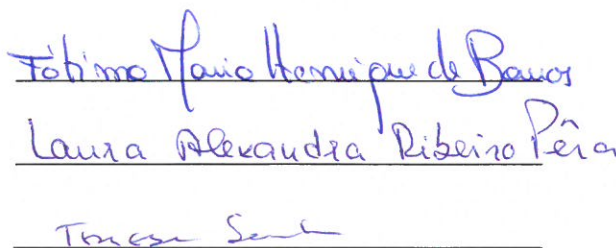 Fátima Maria Henrique de Barros
Laura Alexandra Ribeiro Pêra
Teresa